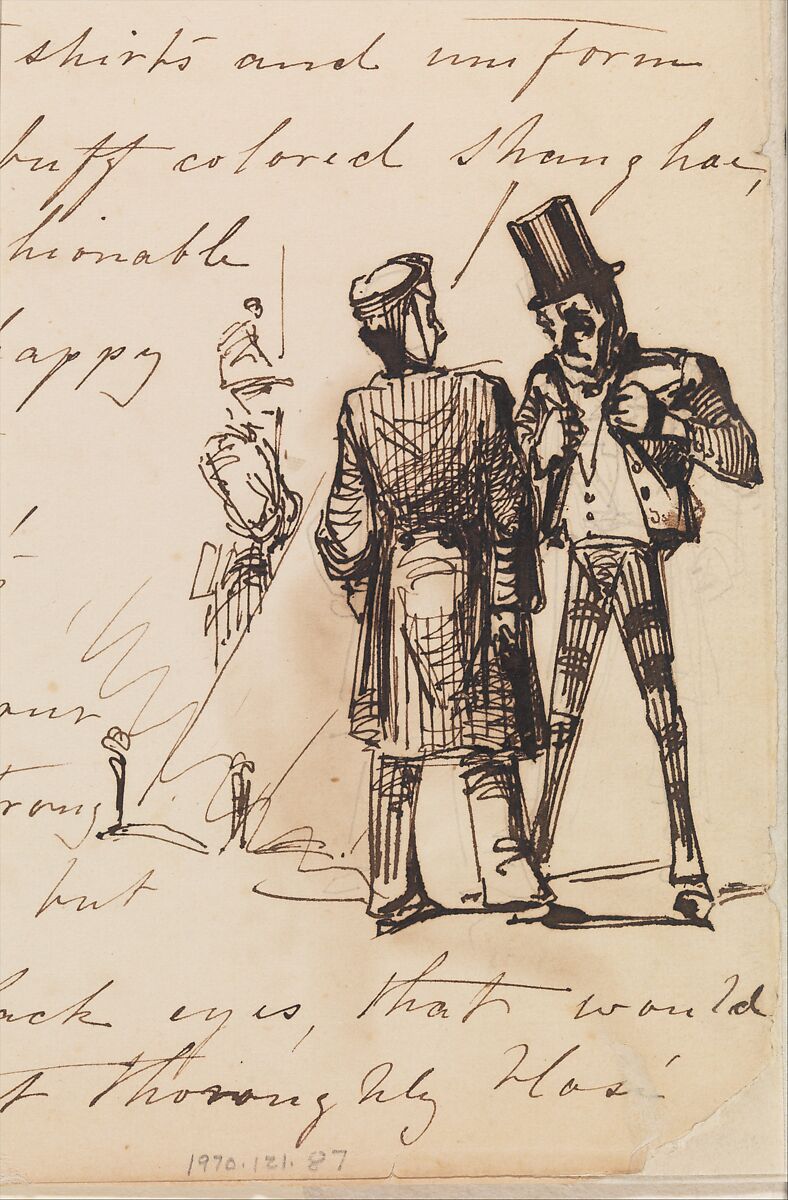 shirts and uniform
buff colored shanghae,
hionable
happy
our
trong
but
ack eyes, that would
t thoroughly blasé
1970.121.87